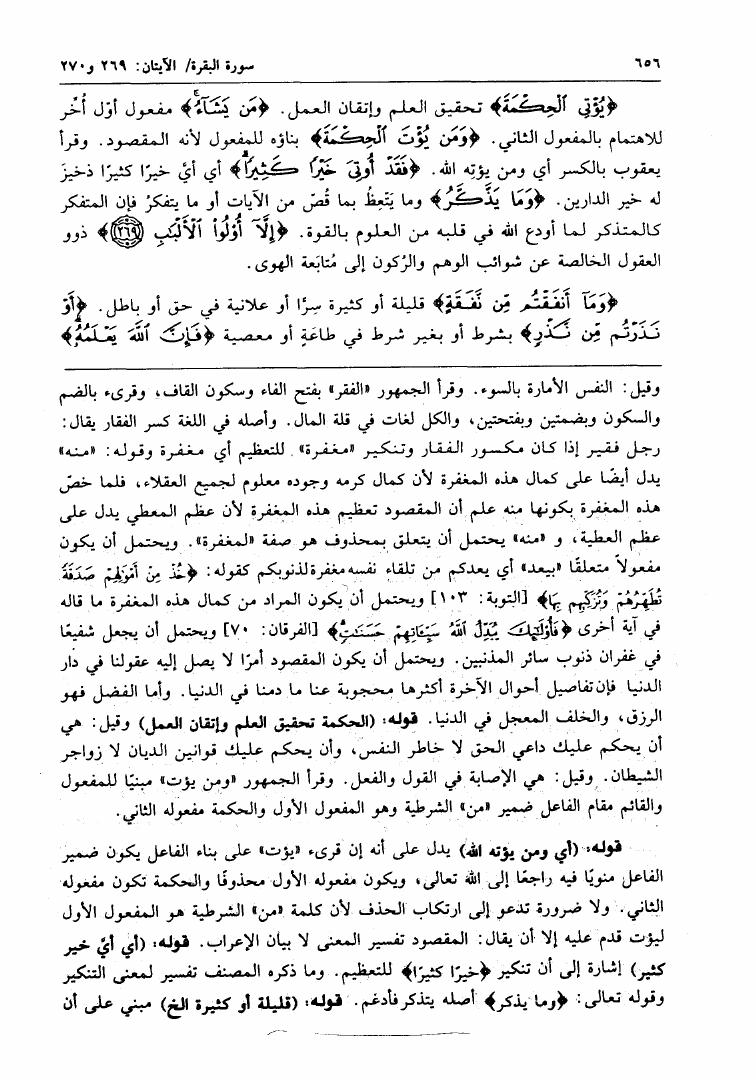 ٦٥٦
سورة البقرة/ الآيتان: ٢٦٩ و٢٧٠
﴿يُؤْتِي الْحِكْمَةَ﴾ تحقيق العلم وإتقان العمل. ﴿مَن يَشَآءُ﴾ مفعول أوّل أُخّر
للاهتمام بالمفعول الثاني. ﴿وَمَن يُؤْتَ الْحِكْمَةَ﴾ بناؤه للمفعول لأنه المقصود. وقرأ
يعقوب بالكسر أي ومن يؤتِه الله. ﴿فَقَدْ أُوتِيَ خَيْرًا كَثِيرًا﴾ أي أيّ خيرًا كثيرًا ذخيزَ
له خير الدارين. ﴿وَمَا يَذَّكَّرُ﴾ وما يَتّعِظُ بما قُصّ من الآيات أو ما يتفكرْ فإن المتفكر
كالمتذكر لما أودع الله في قلبه من العلوم بالقوة. ﴿إِلَّآ أُوْلُواْ الْأَلْبَٰبِ ٢٦٩﴾ ذوو
العقول الخالصة عن شوائب الوهم والرُكون إلى مُتابَعة الهوى.
﴿وَمَآ أَنفَقْتُم مِّن نَّفَقَةٍ﴾ قليلة أو كثيرة سِرًّا أو علانية في حق أو باطل. ﴿أَوْ
نَذَرْتُم مِّن نَّذْرٍ﴾ بشرط أو بغير شرط في طاعَةٍ أو معصية ﴿فَإِنَّ اللَّهَ يَعْلَمُهُ﴾
وقيل: النفس الأمارة بالسوء. وقرأ الجمهور «الفقر» بفتح الفاء وسكون القاف، وقرىء بالضم
والسكون وبضمتين وبفتحتين، والكل لغات في قلة المال. وأصله في اللغة كسر الفقار يقال:
رجل فقير إذا كان مكسور الفقار وتنكير «مغفرة» للتعظيم أي مغفرة وقوله: «منه»
يدل أيضًا على كمال هذه المغفرة لأن كمال كرمه وجوده معلوم لجميع العقلاء، فلما خصّ
هذه المغفرة بكونها منه علم أن المقصود تعظيم هذه المغفرة لأن عظم المعطي يدل على
عظم العطية، و «منه» يحتمل أن يتعلق بمحذوف هو صفة «لمغفرة». ويحتمل أن يكون
مفعولاً متعلقًا «بيعد» أي يعدكم من تلقاء نفسه مغفرة لذنوبكم كقوله: ﴿خُذْ مِنْ أَمْوَٰلِهِمْ صَدَقَةً
تُطَهِّرُهُمْ وَتُزَكِّيهِم بِهَا﴾ [التوبة: ١٠٣] ويحتمل أن يكون المراد من كمال هذه المغفرة ما قاله
في آية أخرى ﴿فَأُوْلَٰٓئِكَ يُبَدِّلُ اللَّهُ سَيِّـَٔاتِهِمْ حَسَنَٰتٍ﴾ [الفرقان: ٧٠] ويحتمل أن يجعل شفيعًا
في غفران ذنوب سائر المذنبين. ويحتمل أن يكون المقصود أمرًا لا يصل إليه عقولنا في دار
الدنيا فإن تفاصيل أحوال الآخرة أكثرها محجوبة عنا ما دمنا في الدنيا. وأما الفضل فهو
الرزق، والخلف المعجل في الدنيا. قوله: (الحكمة تحقيق العلم وإتقان العمل) وقيل: هي
أن يحكم عليك داعي الحق لا خاطر النفس، وأن يحكم عليك قوانين الديان لا زواجر
الشيطان. وقيل: هي الإصابة في القول والفعل. وقرأ الجمهور «ومن يؤت» مبنيًا للمفعول
والقائم مقام الفاعل ضمير «من» الشرطية وهو المفعول الأول والحكمة مفعوله الثاني.
قوله: (أي ومن يؤته الله) يدل على أنه إن قرىء «يؤت» على بناء الفاعل يكون ضمير
الفاعل منويًا فيه راجعًا إلى الله تعالى، ويكون مفعوله الأول محذوفًا والحكمة تكون مفعوله
الثاني. ولا ضرورة تدعو إلى ارتكاب الحذف لأن كلمة «من» الشرطية هو المفعول الأول
ليؤت قدم عليه إلا أن يقال: المقصود تفسير المعنى لا بيان الإعراب. قوله: (أي أيّ خير
كثير) إشارة إلى أن تنكير ﴿خيرًا كثيرًا﴾ للتعظيم. وما ذكره المصنف تفسير لمعنى التنكير
وقوله تعالى: ﴿وما يذكر﴾ أصله يتذكر فأدغم. قوله: (قليلة أو كثيرة الخ) مبني على أن